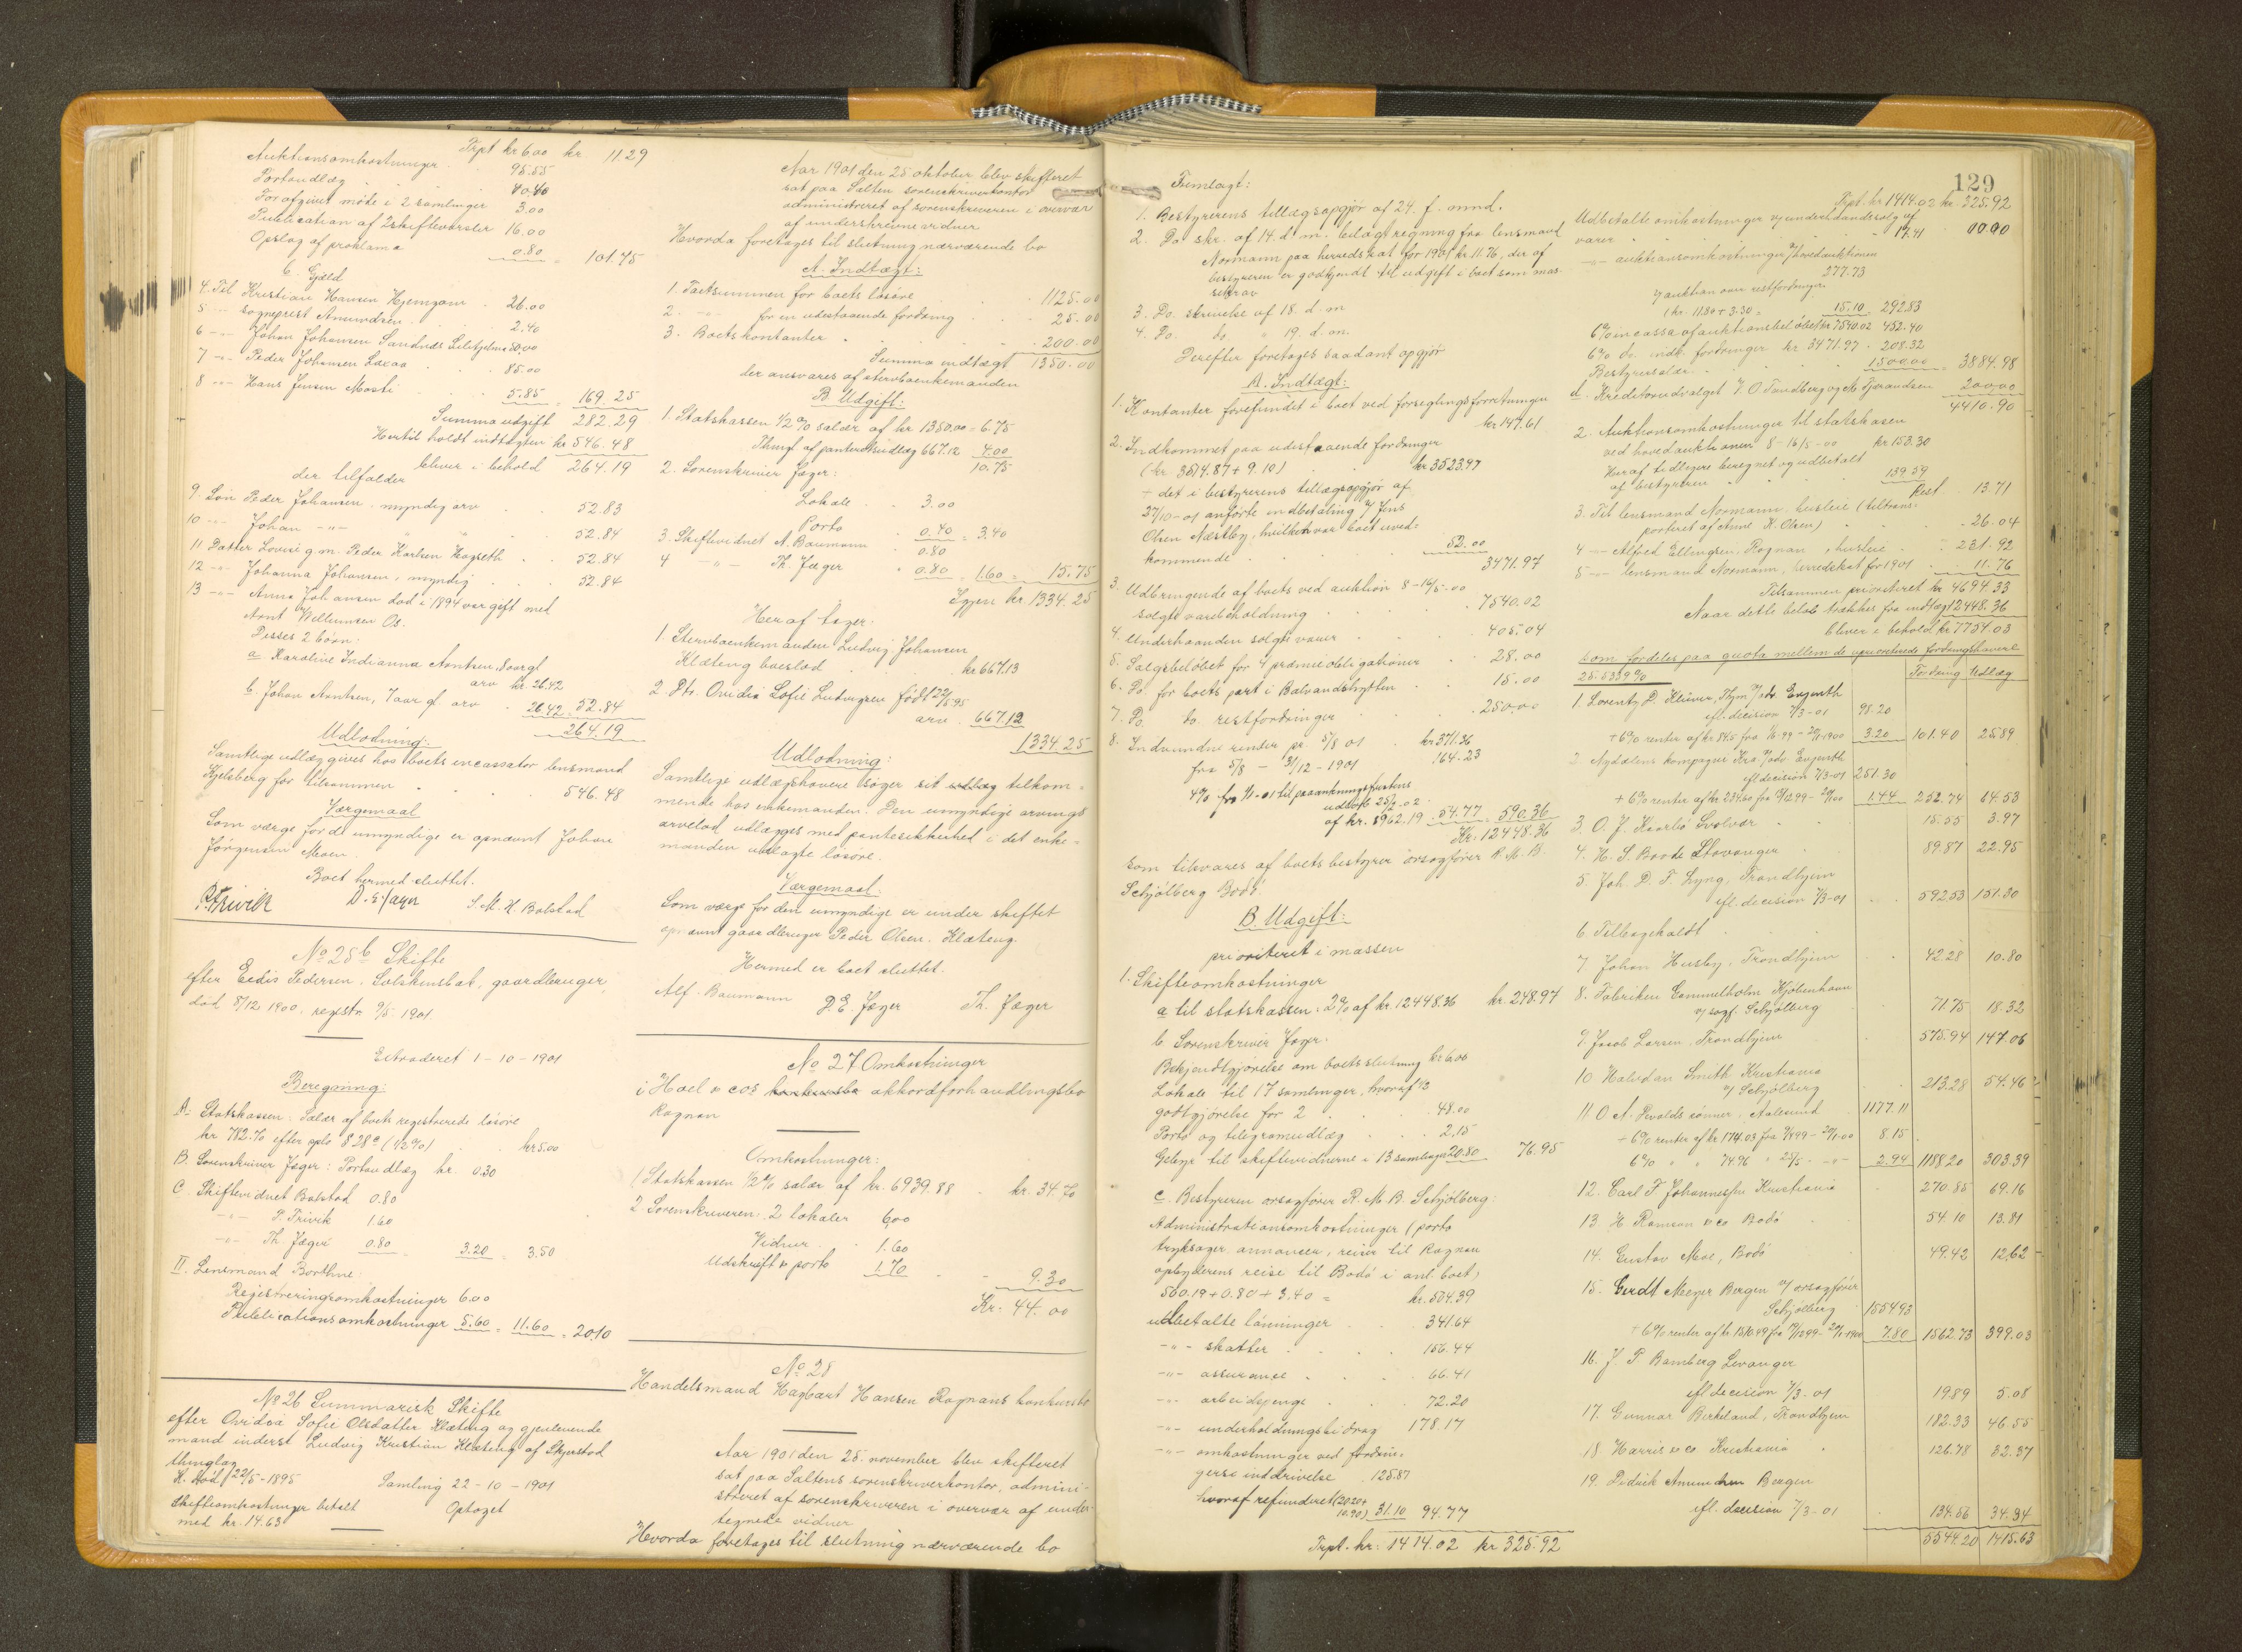 Trpt kr 6.00 kr 11.29
Auktionsomkostninger 95.55
Portoudlæg 10.40
For afgivet möde i 2 samlinger 3.00
Publication af 2 skiftevarsler 16.00
Opslag af proklama 0.80 = 101.75
C. Gjæld
4. Til Kristian Hansen Hjemgam 26.00
5 -"- sogneprest Amundsen 2.40
6 -"- Johan Johansen Sandnes 50.00
7 -"- Peder Johansen Laxaa 85.00
8 -"- Hans Jensen Mosti 5.85 = 169.25
Summa udgift 282.29
Hertil holdt indtægten kr 546.48
bliver i behold 264.19
der tilfalder
9. Sön Peder Johansen . myndig arv 52.83
10 -"- Johan -"- 52.84
11 Datter Lovise g.m. Peder Karlsen Hogseth 52.84
12 -"- Johanna Johansen, myndig 52.84
13 -"- Anna Johansen död i 1894 var gift med
Arnt Willumsen Os.
Disses 2 börn:
a Karoline Indianna Arntsen, 8 aar gl
arv kr 26.42
b. Johan Arntsen, 7 aar gl. arv 26.42 52.84
264.19
Udlodning:
Samtlige udlæg gives hos boets incassator lensmand
Kjelsberg for tilsammen 546.48
Værgemaal
Som værge for de umyndige er opnævnt Johan
Jörgensen Moen.
Boet hermed sluttet.
P. Trivik D. E. Jæger S. M. H. Bolstad
No 25b Skifte
efter Eedis Pedersen, Solskensbat, gaardbruger,
död 8/12 1900. registr 9/5 1901
Extraderet 1-10-1901
Beregning:
A. Statskassen: Salær af boets registrerede lösöre
kr 782.70 efter spls § 28c (1/2%) kr 5.00
B. Sorenskriver Jæger: Portoudlæg kr. 0.30
C. Skiftevidnet Bolstad 0.80
-"- P. Trivik 1.60
-"- Th. Jæger 0.80 = 3.20 = 3.50
II. Lensmand Borthne:
Registreringsomkostninger 6.00
Publicationsomkostninger 5.60 = 11.60 = 20.10
No 26 Summarisk Skifte
efter Ovidia Sofie Olsdatter Klæteng og gjenlevende
mand inderst Ludvig Kristian Klæteng af Skjerstad
thinglag
H. död 22/5-1895 Samling 22-10-1901
Skifteomkostninger betalt Optaget
med kr. 14.63
Aar 1901 den 25 oktober blev skifteret
sat paa Salten sorenskriverkontor
administreret af sorenskriveren i overvær
af underskrevne vidner
Hvorda foretages til slutning nærværende bo
A. Indtægt:
1. Taxtsummen for boets lösöre 1125.00
2. -"- for en udestaaende fordring 25.00
3. Boets kontanter 200.00
Summa indtægt 1350.00
der ansvares af stervboenkemanden
B Udgift:
1. Statskassen 1/2% salær af kr 1350.00 = 6.75
Thingl af panteretsudlæg 667.12 4.00
10.75
2. Sorenskriver Jæger:
Lokale 3.00
Porto 0.40 = 3.40
3. Skiftevidnet A. Baumann 0.80
4 -"- Th. Jæger 0.80 . 1.60 = 15.75
Igjen kr. 1334.25
Heraf tager:
1. Stervboenkemanden Ludvig Johansen
Klæteng boeslod kr 667.13
2. Dtr. Ovidia Sofie Ludvigsen född 22/5 95
arv. 667.12
1334.25
Udlodning:
Samtlige udlægshavere söger sit udlæg tilkom-
mende hos enkemanden. Den umyndige arvings
arvelod udlægges med pantesikkerhed i det enke-
manden udlagte lösöre.
Værgemaal:
Som værge for den umyndige er under skiftet
opnævnt gaardbruger Peder Olsen. Klæteng.
Hermed er boet sluttet.
Alf. Baumann D. E. Jæger Th. Jæger
No 27 Omkostninger
i Hoel & cos konkursbo akkordforhandlingsbo
Rognan
Omkostninger:
1 Statskassen 1/2% salær af kr. 6939.88 kr. 34.70
2 Sorenskriveren. 2 lokaler 6,00
Vidner 1.60
Udskrift & porto 1.70 9.30
Kr. 44.00
No 28
Handelsmand Hagbart Hansen Rognans konkursbo
Aar 1901 den 25. november blev skifteret
sat paa Saltens sorenskriverkontor, admini-
streret af sorenskriveren i overvær af under-
tegnede vidner
Hvorda foretages til slutning nærværende bo
129
Fremlagt:
1. Bestyrerens tillægsopgjör af 24. f. mnd.
2. Do skr. af 14. d. m. bilagt regning fra lensmand
Normann paa herredskat for 1901 kr 11.76, der af
bestyreren er godkjendt til udgift i boet som mas-
sekrav
3. Do. skrivelse af 18. d. m
4. Do. do. " 19. d. m.
Derefter foretages saadant opgjör
A. Indtægt:
1. Kontanter forefundet i boet ved forseglingsforretningen
kr 147.61
2. Indkommet paa udestaaende fordringer
(kr. 3514.87 + 9.10) kr 3523.97
÷ det i bestyrerens tillægsopgjör af
27/10-01 anförte indbetaling f. Jens
Olsen Næstby, hvilken var boet uved-
kommende 52.00
3471.97
3. Udbringende af boets ved auktion 8-16/5-00
solgte varebeholdning 7540.02
4. Underhaanden solgte varer 405.04
5. Salgsbelöbet for 4 præmieobligationer 28.00
6. Do. for boets part i Balvandshytten 15.00
7. Do. do. restfordringer 250.00
8. Indvundne renter pr. 5/8 01 kr 371.36
fra 5/8 - 31/12 - 1901 164.23
4% fra 1/1-01 til paaankningsfristens
udlöb 25/2.02
af kr. 8962.19 54.77 = 590.36
Kr. 12448.36
som tilsvares af boets bestyrer orsagförer R. M. B.
Schjölberg Bodö
B. Udgift:
prioriteret i massen
1. Skifteomkostninger
a til statskassen: 2% af kr. 12448.36 kr. 248.97
b. Sorenskriver Jæger:
Bekjendtgjörelse om boets slutning kr 6.00
Lokale til 17 samlinger, hvoraf 1/2
godtgjörelse for 2 48.00
Porto og telegramudlæg 2.15
Gebyr til skiftevidnerne i 13 samlinger 20.80 76.95
c. Bestyreren orsagförer R. M. B. Schjölberg:
Administrationsomkostninger (porto
tryksager, annoncer, reiser til Rognan
opbyderens reise til Bodö i anl. boet)
500.19 + 0.80 + 3.40 = kr. 504.39
udbetalte lönninger 341.64
-"- skatter 156.44
-"- assurance 66.41
-"- arbeidspenge 72.20
-"- underholdningsbidrag 178.17
-"- omkostninger ved fordrin-
gers inddrivelse 125.87
hvoraf refunderet (20.20+
10.90) 31.10 94.77
Trpt. kr: 1414.02 kr 325.92
Trpt. kr 1414.02 kr. 325.92
Udbetalte omkostninger v/ underhaandssalg af
varer 17.41
-"- auktionsomkostninger v/ hovedauktionen
277.73
v/ auktion over restfordringer
(kr. 11.80 + 3.30 = 15.10 292.83
6% incasso af auktionsbelöbet kr 7540.02 452.40
6% do. indk. fordringer kr 3471.97 208.32
Bestyrersalær 1500.00 = 3884.98
d. Kreditorudvalget J. O. Tandberg og M. Fjærandsen 200.00
4410.90
2. Auktionsomkostninger til statskassen
ved hovedauktionen 8-16/5-00 kr 153.30
Heraf tidligere beregnet og udbetalt
af bestyreren 139.59
Rest 13.71
3. Til lensmand Normann, husleie (tiltrans-
porteret af Arne K. Olsen) 26.04
4 -"- Alfred Ellingsen, Rognan, husleie 231.92
5 -"- lensmand Normann, herredskat for 1901 11.76
Tilsammen prioriteret kr 4694.33
Naar dette belöb trækkes fra indtægt 12448.36
bliver i behold kr 7754.03
som fordeles paa quota mellem de uprioriterede fordringshavere
25.5339% Fordring Udlæg
1. Lorentz D. Klüwer, Thjm v/ adv. Engerth
ifl. decision 7/3-01 98.20
+ 6% renter 3.20 101.40 25.89
2. Nydalens kompagni Kra v/ adv Engerth
ifl decision 7/3-01 251.30
+ 6% renter 1.44 252.74 64.53
3. O. J. Kaarbö Svolvær 15.55 3.97
4. H. S. Boode Stavanger 89.87 22.95
5. Joh. D. F. Lyng, Trondhjem
ifl. decision 7/3-01 592.53 151.30
6. Tilbageholdt
7 Johan Husby, Trondhjem 42.28 10.80
8. Fabriken Gammelholm Kjöbenhavn
v/ sagf. Schjölberg 71.75 18.32
9. Jacob Larsen, Trondhjem 575.94 147.06
10 Halvdan Smith Kristiania
v/ Schjölberg 213.28 54.46
11. O A. Devolds sönner, Aalesund 1177.11
+ 6% renter 8.15
6% " " 74.96 " -"- 2.94 1188.20 303.39
12. Carl F Johannessen Kristiania 270.85 69.16
13 H Ramson & co Bodö 54.10 13.81
14. Gustav Moe, Bodö 49.42 12,62
15. Gerdt Meyer Bergen v/ orsagförer
Schjölberg 1554.93
+ 6% renter 7.80 1562.73 399.03
16. J. P. Bamberg Levanger
ifl decision 7/3-01 19.89 5.08
17. Gunnar Birkeland, Trondhjem 182.33 46.55
18 Harris & co Kristiania 126.78 32.37
19. Didrik Amundsen Bergen
ifl. decision 7/3-01 134.56 34.34
5544.20 1415.63